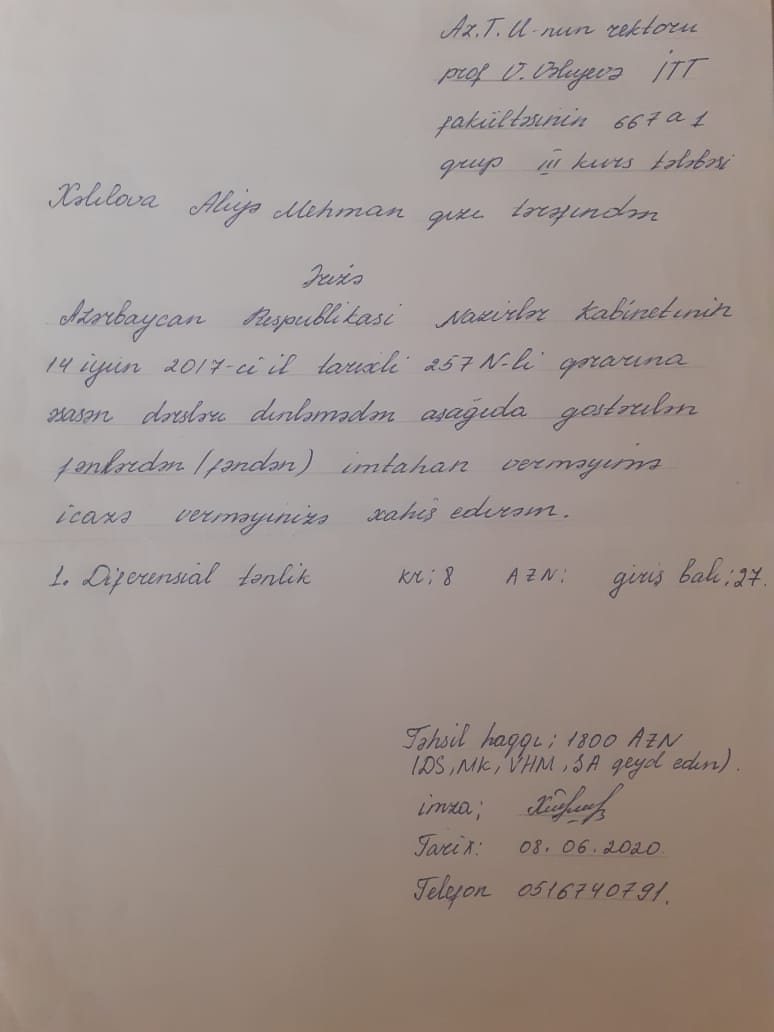 Az.T.U-nun rektoru
prof V. Vəliyevə İTT
fakültəsinin 667 a 1
grup III kurs tələbəsi
Xəlilova Aliyə Mehman qızı tərəfindən
Ərizə
Azərbaycan Respublikasi Nazirlər Kabinetinin
14 iyun 2017-ci il tarixli 257 N-li qərarına
əsasən dərsləri dinləmədən aşağıda göstərilən
fənlərdən (fəndən) imtahan verməyimə
icazə verməyinizə xahiş edirəm.
1. Diferensial tənlik kr; 8 AZN: giriş balı; 27.
Təhsil haqqı; 1800 AZN
(DS, MK, VHM, ŞA qeyd edin).
imza;
Tarix: 08.06.2020
Telefon 0516740791.